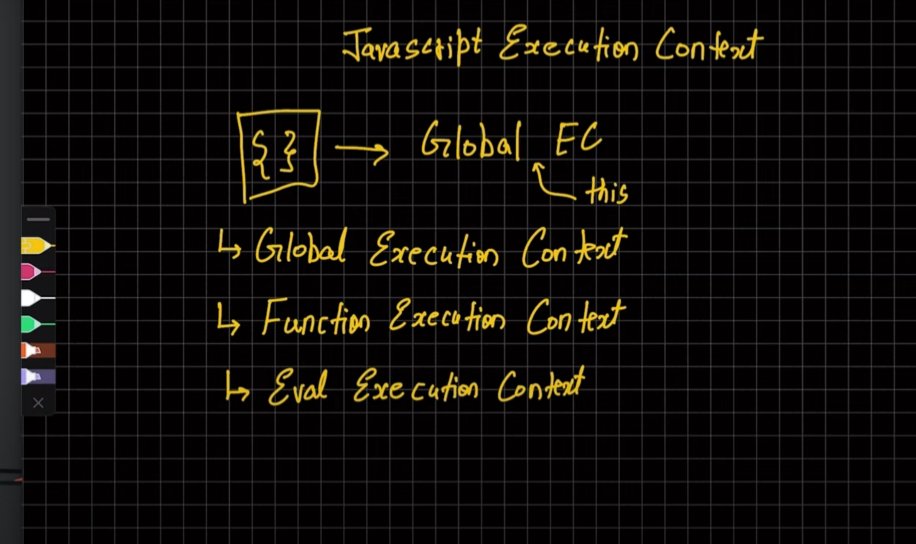 Javascript Execution Context
{ } → Global EC
this
↳ Global Execution Context
↳ Function Execution Context
↳ Eval Execution Context